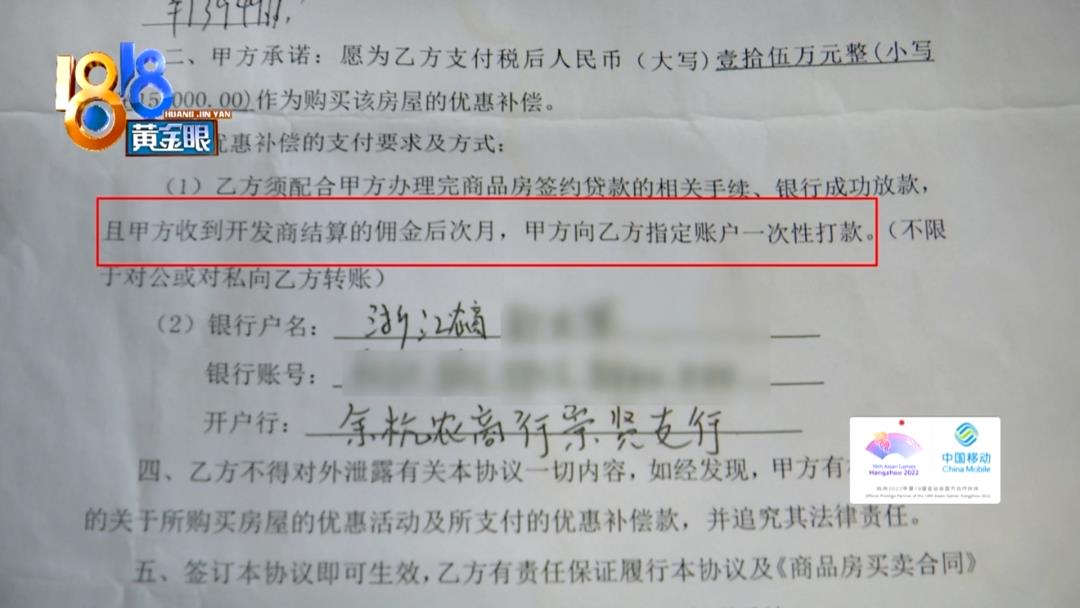 二、甲方承诺：愿为乙方支付税后人民币（大写）壹拾伍万元整(小写
000.00)作为购买该房屋的优惠补偿。
1818
HUANG JIN YAN
黄金眼
优惠补偿的支付要求及方式：
（1）乙方须配合甲方办理完商品房签约贷款的相关手续、银行成功放款，
且甲方收到开发商结算的佣金后次月，甲方向乙方指定账户一次性打款。（不限
于对公或对私向乙方转账）
（2）银行户名：浙江
银行账号：
开户行：余杭农商行崇贤支行
19th Asian Games
Hangzhou 2022
中国移动
China Mobile
杭州2022年第19届亚运会官方合作伙伴
Official Prestige Partner of the 19th Asian Games Hangzhou 2022
四、乙方不得对外泄露有关本协议一切内容，如经发现，甲方有
的关于所购买房屋的优惠活动及所支付的优惠补偿款，并追究其法律责任。
五、签订本协议即可生效，乙方有责任保证履行本协议及《商品房买卖合同》